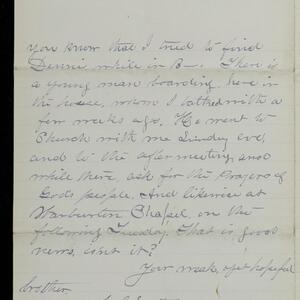 you know that I tried to find
Dennis while in B—. There is
a young man boarding here in
the house, whom I talked with a
few weeks ago. He went to
Church with me Sunday eve,
and to the after meeting, and
while there, ask for the Prayers of
Gods people. And likewise at
Warburton Chapel, on the
following Tuesday. That is good
news, isn't it?
Your weak, yet hopeful
brother